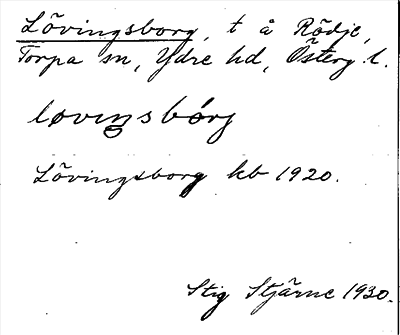 Lövingsborg, t å Rödje,
Torpa sn, Ydre hd, Österg. l.
løviŋsbórj
Lövingsborg kb 1920.
Stig Stjärne 1930.